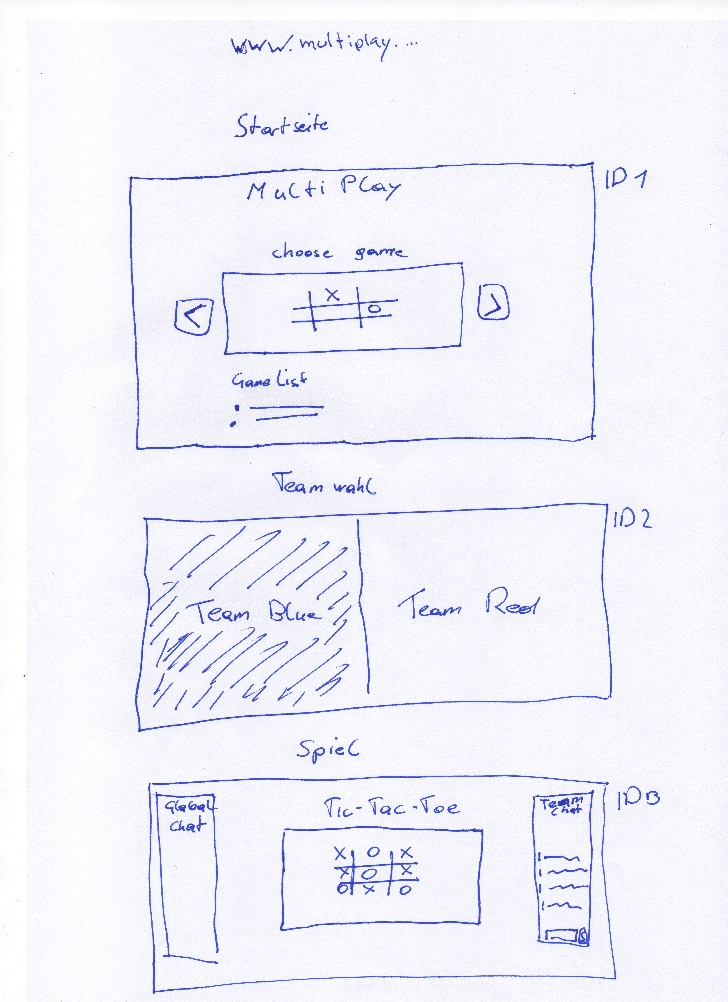 www.multiplay....
Startseite
ID1
Multi Play
choose game
< >
X
O
Game List
Team wahl
ID2
Team Blue Team Red
Spiel
ID3
Global Chat
Tic-Tac-Toe
Team Chat
X O X
X O X
O X O